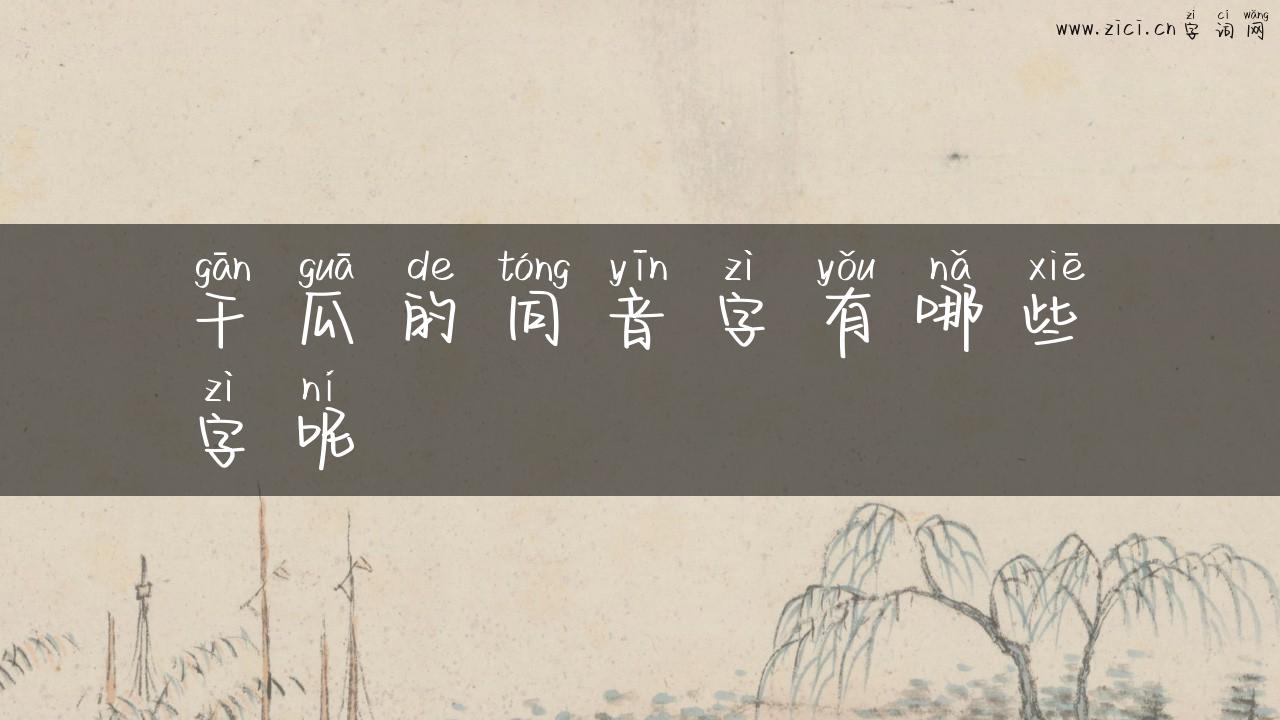 zì cí wǎng
www.zici.cn 字词网
gān guā de tóng yīn zì yǒu nǎ xiē
干瓜的同音字有哪些
zì ní
字呢